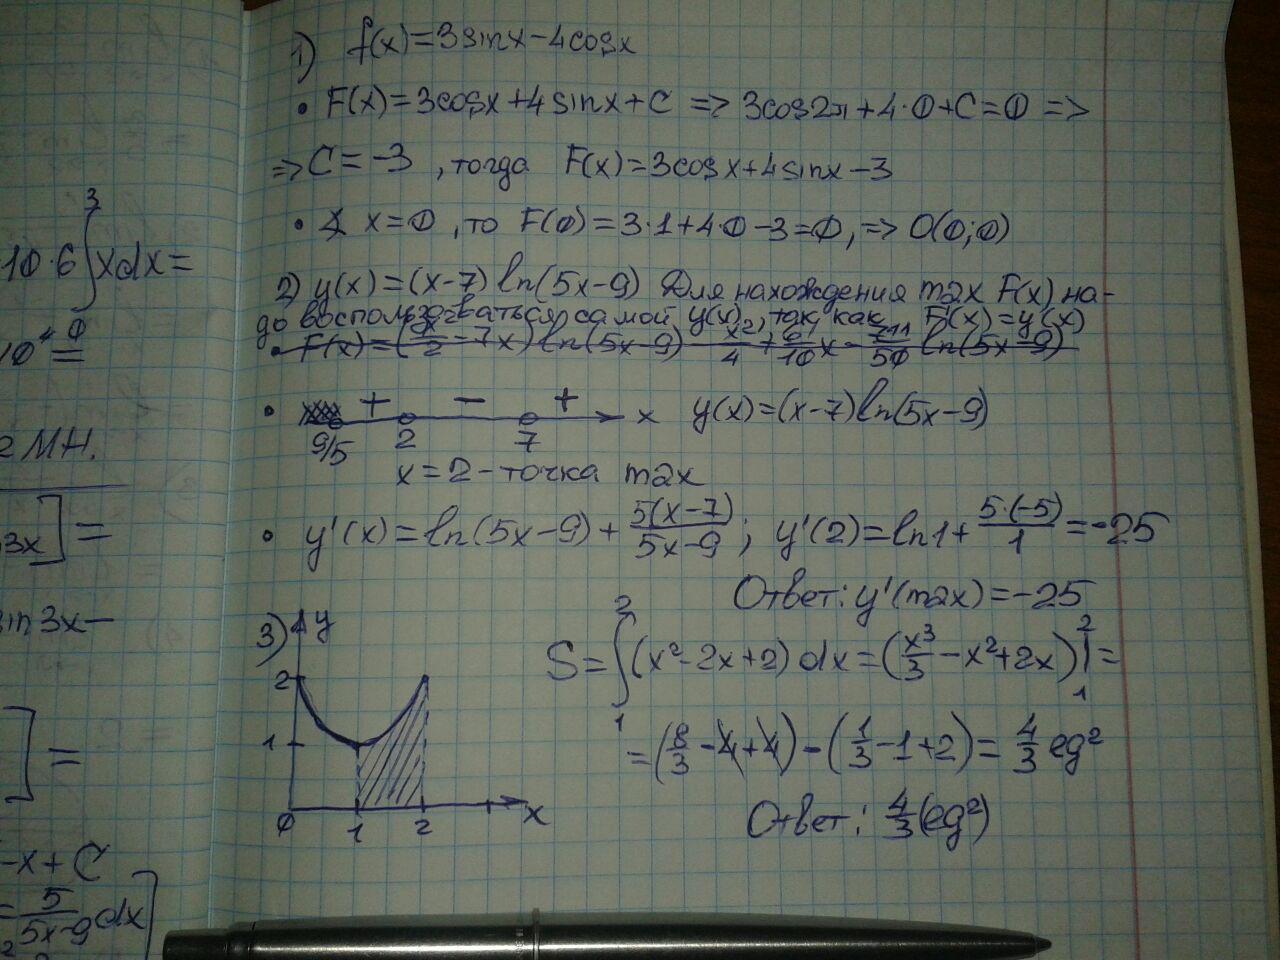 ·10·6∫₀³xdx=
10⁴=
2 МН.
3x]=
sin3x−
]=
−x+C
=5/(5x−9)dx]
1) f(x)=3sinx−4cosx
• F(x)=3cosx+4sinx+C => 3cos2π+4·0+C=0 =>
=> C=−3, тогда F(x)=3cosx+4sinx−3
• x=0, то F(0)=3·1+4·0−3=0, => O(0;0)
2) y(x)=(x−7)ln(5x−9) Для нахождения max F(x) на-
до воспользоваться самой y(x), так как F'(x)=y(x)
• F(x)=(x²/2−7x)ln(5x−9)−x²/4+61/10x−211/50 ln(5x−9)
• + − + x y(x)=(x−7)ln(5x−9)
9/5 2 7
x=2−точка max
• y'(x)=ln(5x−9)+5(x−7)/(5x−9); y'(2)=ln1+5·(−5)/1=−25
Ответ: y'(max)=−25
3) y
2 1 0 1 2 x
S=∫₁²(x²−2x+2)dx=(x³/3−x²+2x)|₁²=
=(8/3−4+4)−(1/3−1+2)=4/3 eg²
Ответ: 4/3(eg²)